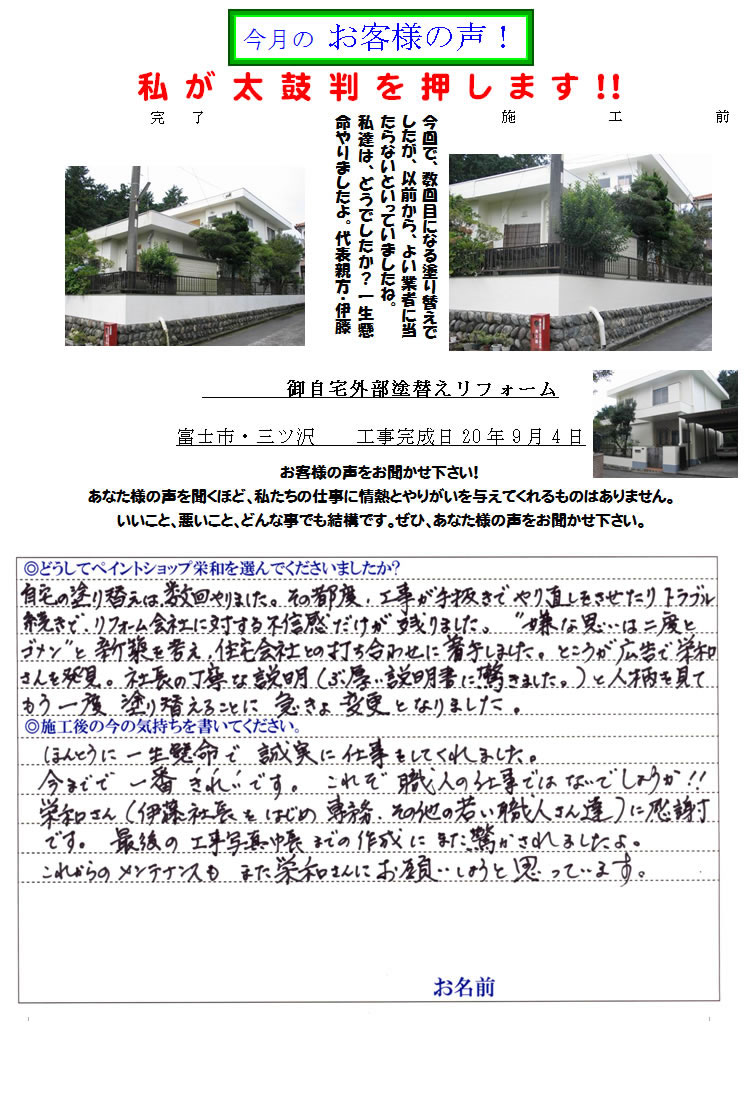 今月の お客様の声！
私が太鼓判を押します!!
完 了
施 工 前
今回で、数回目になる塗り替えで
したが、以前から、よい業者に当
たらないといっていましたね。
私達は、どうでしたか？一生懸
命やりましたよ。代表親方・伊藤
御自宅外部塗替えリフォーム
富士市・三ツ沢 工事完成日20年9月4日
お客様の声をお聞かせ下さい!
あなた様の声を聞くほど、私たちの仕事に情熱とやりがいを与えてくれるものはありません。
いいこと、悪いこと、どんな事でも結構です。ぜひ、あなた様の声をお聞かせ下さい。
◎どうしてペイントショップ栄和を選んでくださいましたか?
自宅の塗り替えは、数回やりました。その都度、工事が手抜きでやり直しをさせたりトラブル
続きで、リフォーム会社に対する不信感だけが残りました。“嫌な思いは二度と
ゴメン”と新築を考え、住宅会社との打ち合わせに着手しました。ところが広告で栄和
さんを発見。社長の丁寧な説明（ぶ厚い説明書に驚きました。）と人柄を見て
もう一度塗り替えることに急きょ変更となりました。
◎施工後の今の気持ちを書いてください。
ほんとうに一生懸命で誠実に仕事をしてくれました。
今までで一番きれいです。これぞ職人の仕事ではないでしょうか!!
栄和さん（伊藤社長をはじめ専務、その他の若い職人さん達）に感謝
です。最後の工事写真帳までの作成にまた驚かされましたよ。
これからのメンテナンスもまた栄和さんにお願いしようと思っています。
お名前